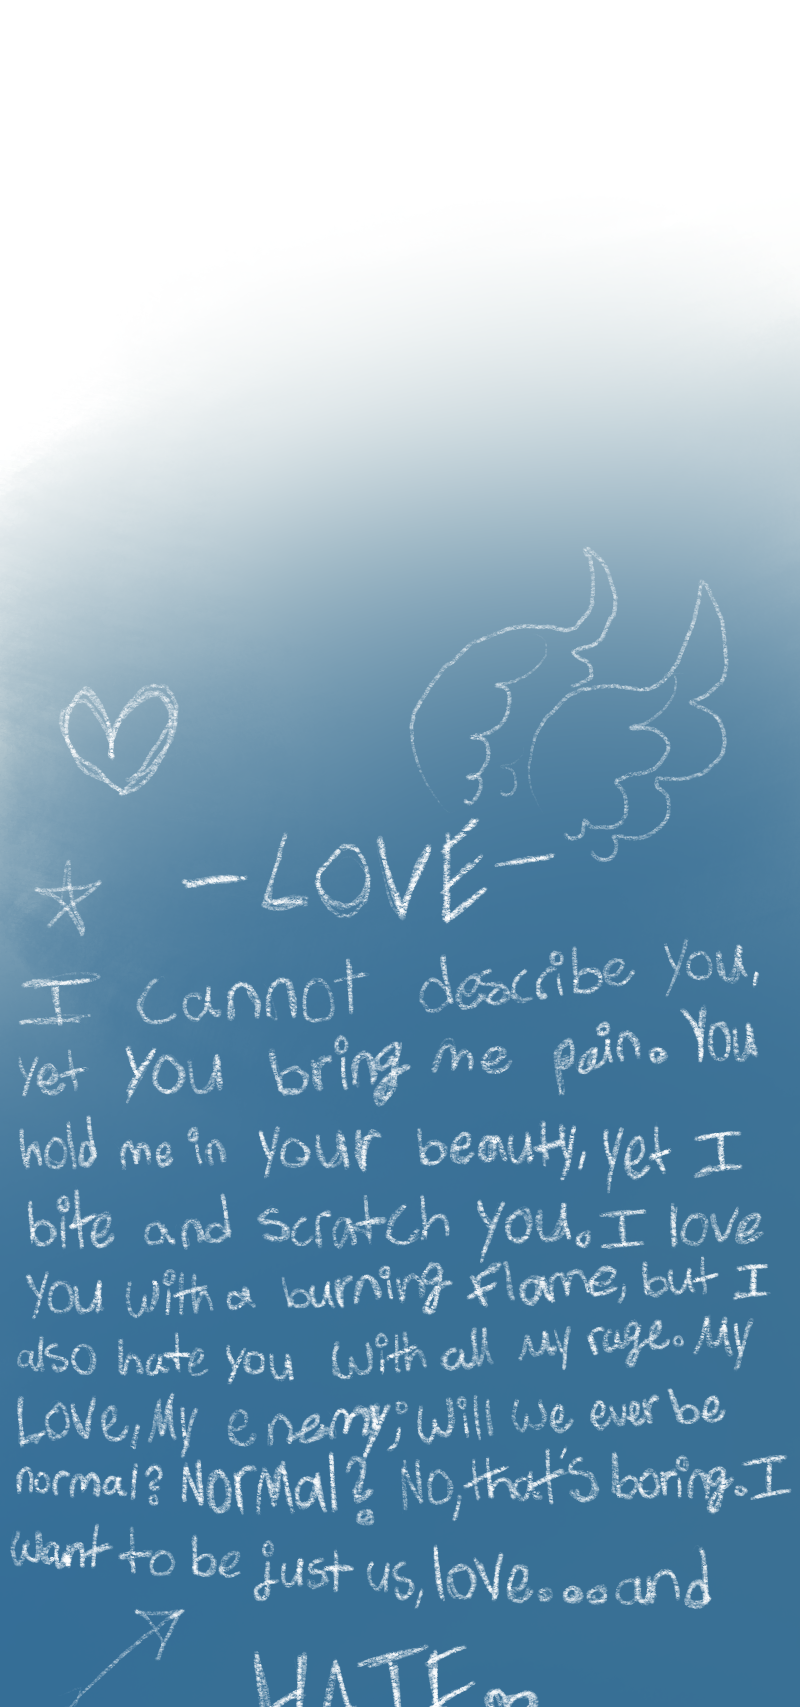 -LOVE-
I cannot describe you,
yet you bring me pain. You
hold me in your beauty, yet I
bite and scratch you. I love
you with a burning flame, but I
also hate you with all my rage. My
Love, My enemy; will we ever be
normal? Normal? No, that's boring. I
want to be just us, love...and
HATE